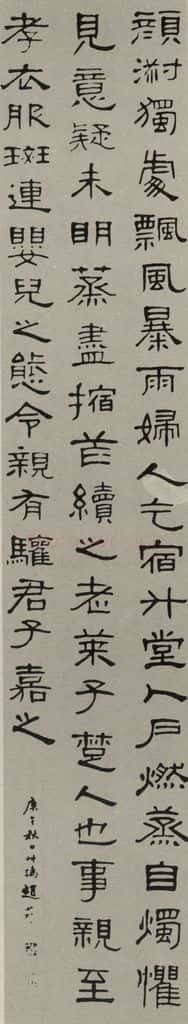 顏淑獨處飄風暴雨婦人乞宿升堂入戶燃蒸自燭懼
見意疑未明蒸盡摍苲續之老萊子楚人也事親至
孝衣服斑連嬰兒之態令親有驩君子嘉之
庚子秋日竹趙